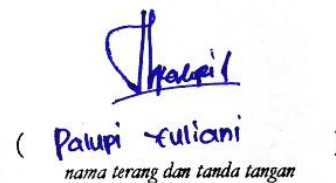 ( Palupi Yuliani )
nama terang dan tanda tangan